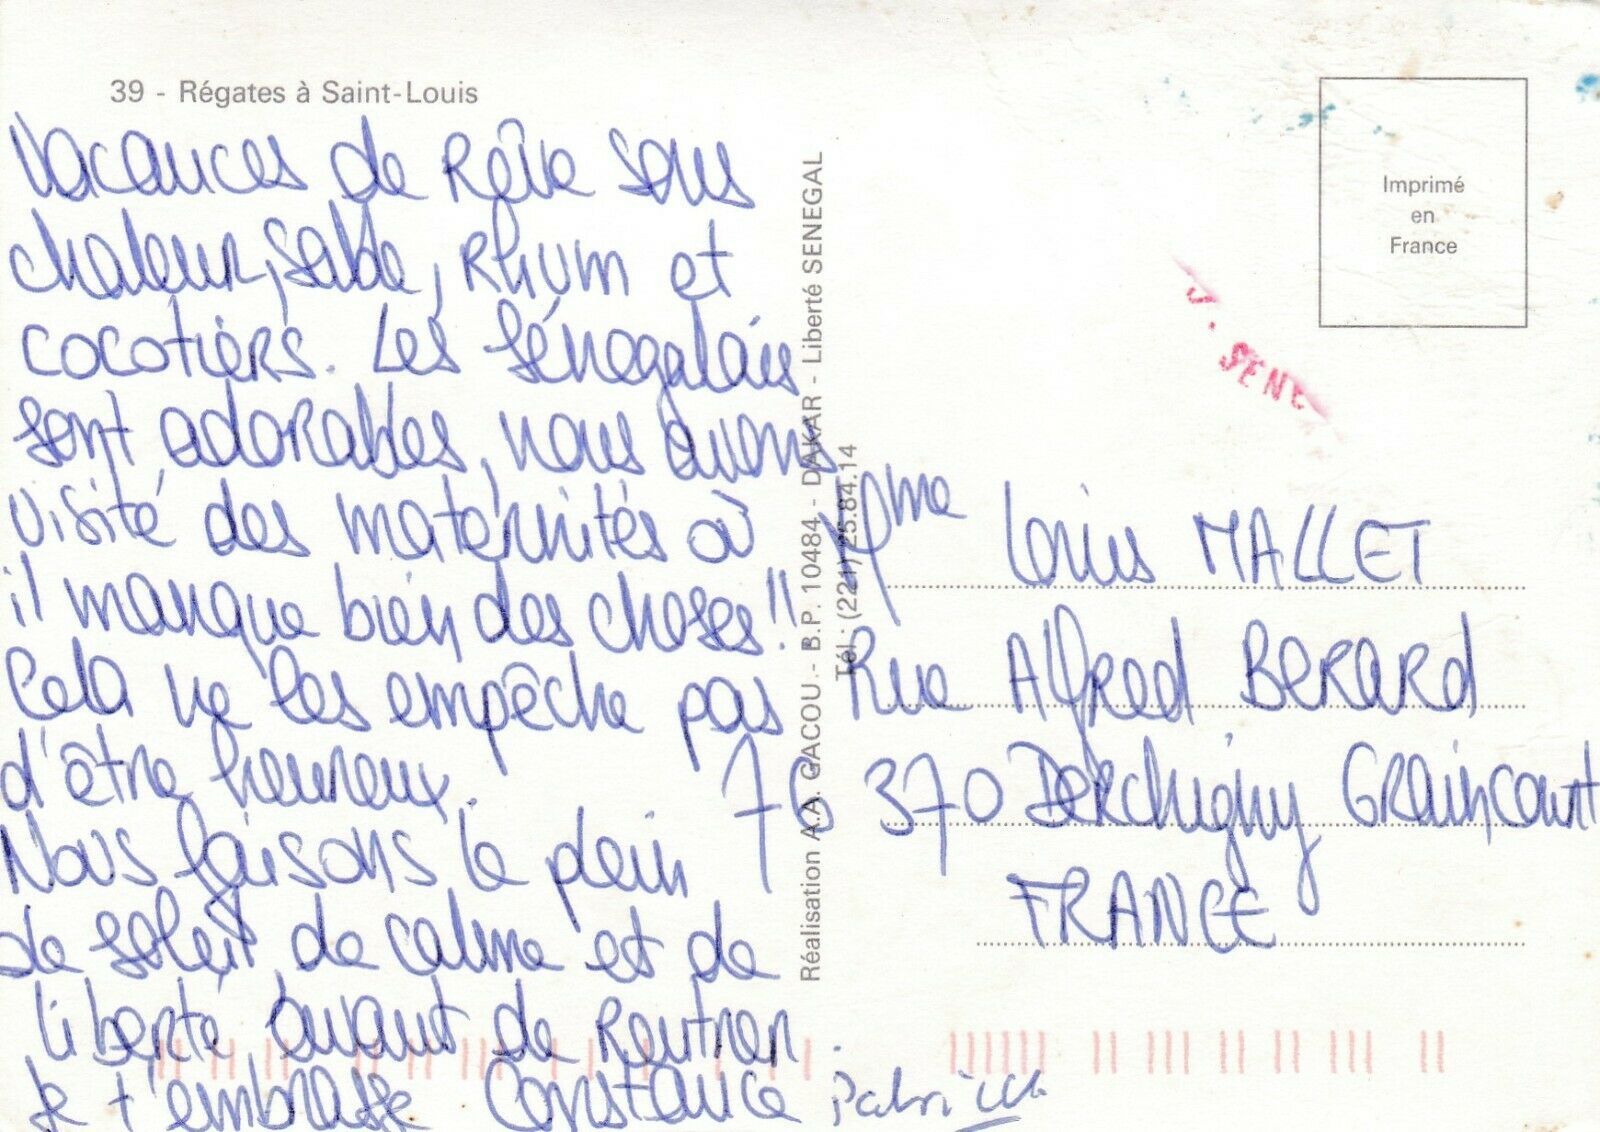 39 - Régates à Saint-Louis
Vacances de Rêve sous
chaleur, sable, Rhum et
cocotiers. Les Sénégalais
sont adorables, nous avons
visité des maternités où
il manque bien des choses!!
Cela ne les empêche pas
d'être heureux.
Nous faisons le plein
de soleil, de calme et de
liberté avant de Rentrer.
Je t'embrasse Constance
Patrick
Réalisation A.A. GACOU.- B.P. 10484 - DAKAR - Liberté SENEGAL
Tél.: (221) 25.84.14
Imprimé
en
France
Mme Louis MALLET
Rue Alfred BERARD
76 370 Derchigny Graincourt
FRANCE